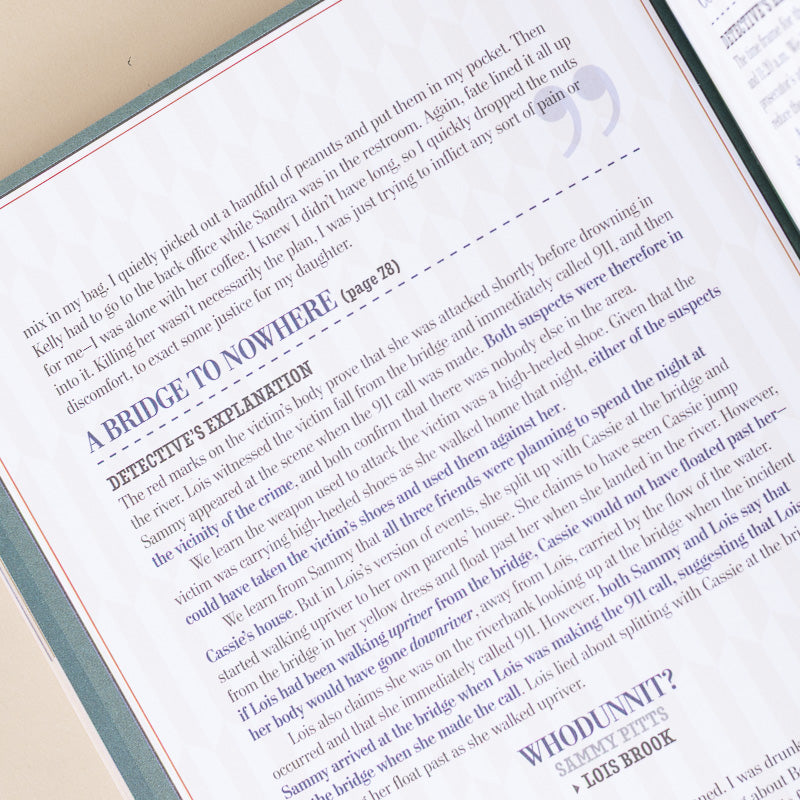 mix in my bag. I quietly picked out a handful of peanuts and put them in my pocket. Then
Kelly had to go to the back office while Sandra was in the restroom. Again, fate lined it all up
for me—I was alone with her coffee. I knew I didn't have long, so I quickly dropped the nuts
into it. Killing her wasn't necessarily the plan, I was just trying to inflict any sort of pain or
discomfort, to exact some justice for my daughter.
”
A BRIDGE TO NOWHERE (page 78)
DETECTIVE'S EXPLANATION
The red marks on the victim's body prove that she was attacked shortly before drowning in
the river. Lois witnessed the victim fall from the bridge and immediately called 911, and then
Sammy appeared at the scene when the 911 call was made. Both suspects were therefore in
the vicinity of the crime, and both confirm that there was nobody else in the area.
We learn the weapon used to attack the victim was a high-heeled shoe. Given that the
victim was carrying high-heeled shoes as she walked home that night, either of the suspects
could have taken the victim's shoes and used them against her.
We learn from Sammy that all three friends were planning to spend the night at
Cassie's house. But in Lois's version of events, she split up with Cassie at the bridge and
started walking upriver to her own parents' house. She claims to have seen Cassie jump
from the bridge in her yellow dress and float past her when she landed in the river. However,
if Lois had been walking upriver from the bridge, Cassie would not have floated past her—
her body would have gone downriver, away from Lois, carried by the flow of the water.
Lois also claims she was on the riverbank looking up at the bridge when the incident
occurred and that she immediately called 911. However, both Sammy and Lois say that
Sammy arrived at the bridge when Lois was making the 911 call, suggesting that Lois
the bridge when she made the call. Lois lied about splitting with Cassie at the
her float past as she walked upriver.
WHODUNNIT?
SAMMY PITTS
▸ LOIS BROOK
I was
about
DETECTIVE'S